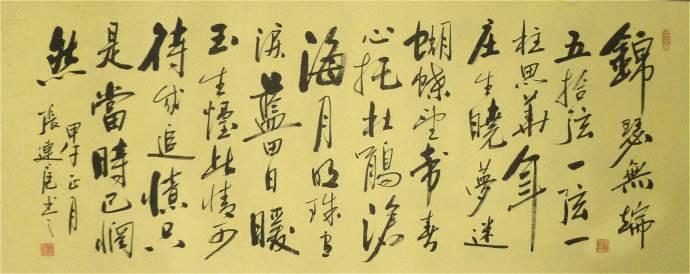 錦瑟無端
五拾弦一弦一
柱思華年
庄生曉夢迷
蝴蝶望帝春
心托杜鵑滄
海月明珠有
淚藍田日暖
玉生煙此情可
待成追憶只
是當時已惘
然
甲午正月
張連良書